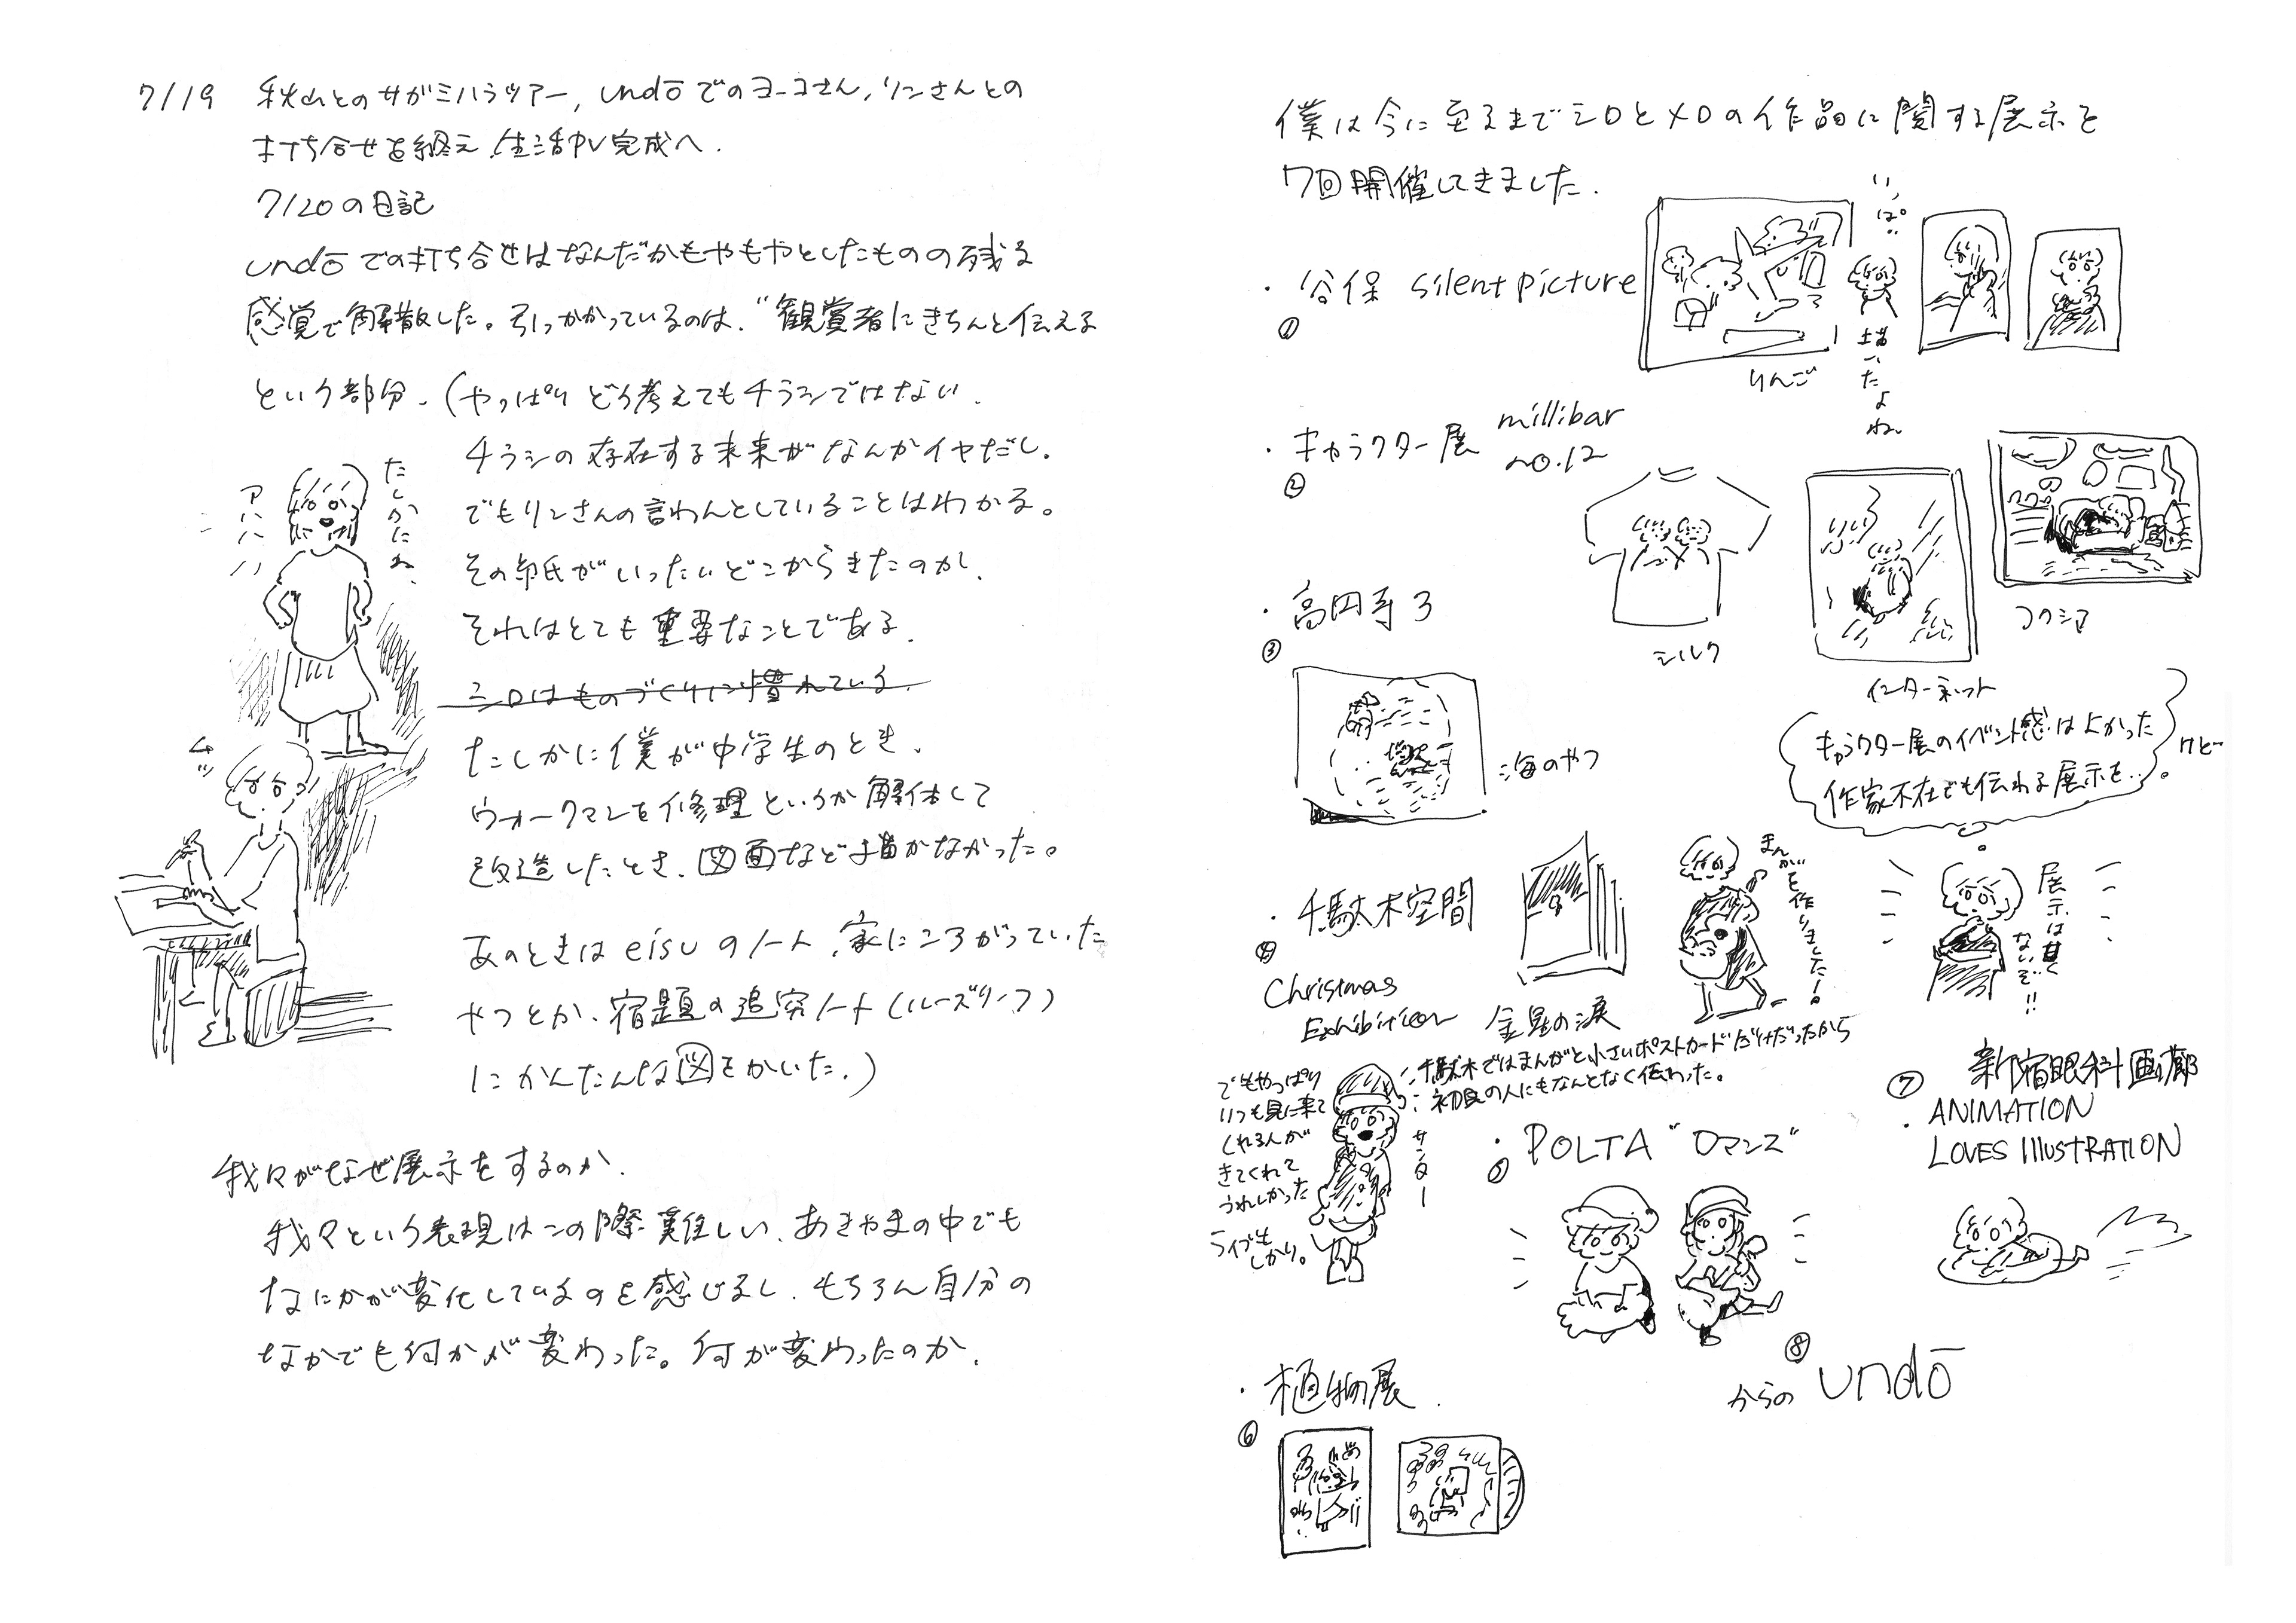 7/19 秋山とのサガミハラツアー, undōでのヨーコさん, リンさんとの
打ち合せを終え、生活PV完成へ.
7/20の日記
undōでの打ち合せはなんだかもやもやとしたものの残る
感覚で解散した。引っかかっているのは、"観賞者にきちんと伝える
という部分.(やっぱりどう考えてもチラシではない.
チラシの存在する未来がなんかイヤだし.
でもリンさんの言わんとしていることはわかる。
その紙がいったいどこからきたのか、
それはとても重要なことである.
シロはものづくりに慣れている.
たしかに僕が中学生のとき、
ウォークマンを修理というか解体して
改造したとき、図面など描かなかった。
あのときはeisuのノート、家にころがっていた
やつとか、宿題の追究ノート(ルーズリーフ)
にかんたんな図をかいた.)
たしかにね、
アハハハハ
我々がなぜ展示をするのか.
我々という表現はこの際難しい、あきやまの中でも
なにかが変化しているのを感じるし、もちろん自分の
なかでも何かが変わった。何が変わったのか.
僕は今に至るまでシロとメロの作品に関する展示を
7回開催してきました.
・谷保 silent picture
①
いっぱい
描いたよね
りんご
・キャラクター展 millibar
no.12
②
シルク
インターネット
フクシマ
・高円寺3
③
海のやつ
キャラクター展のイベント感はよかった
けど
作家不在でも伝わる展示を…。
・千駄木空間
④
Christmas
Exhibition
金星の涙
まんがを作りました!
展示は甘く
ないぞ!!
千駄木ではまんがと小さいポストカードだけだったから
初見の人にもなんとなく伝わった。
でもやっぱり
いつも見に来て
くれる人が
きてくれて
うれしかった
ライブも
しかり。
サンター
・POLTA "ロマンス"
⑤
⑦ 新宿眼科画廊
・ANIMATION
LOVES ILLUSTRATION
・植物展.
⑥
⑧
からの undō